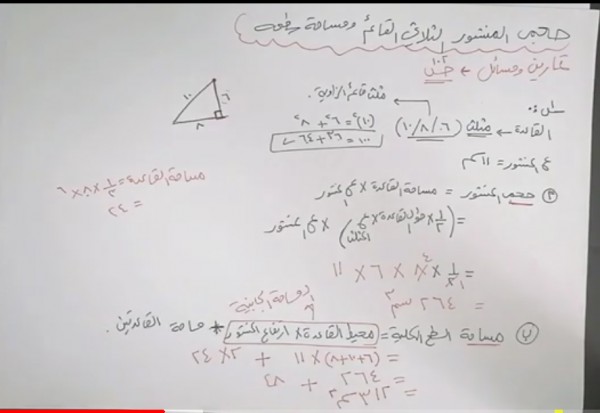 حجم المنشور الثلاثي القائم ومساحة سطحه
تمارين ومسائل ← ص ١٠٢
مثلث قائم الزاوية.
القاعدة ← مثلث (٦، ٨، ١٠)
(١٠)² = ٦² + ٨²
١٠٠ = ٣٦ + ٦٤ ✓
١٠
٦
٨
ع المنشور = ١١ سم
مساحة القاعدة = ١/٢ × ٨ × ٦
= ٢٤
حجم المنشور = مساحة القاعدة × ع المنشور
= (١/٢ × طول القاعدة × ع المثلث) × ع المنشور
= ١/٢ × ٨ × ٦ × ١١
٤
١
= ٢٦٤ سم³
المساحة الجانبية
ب) مساحة السطح الكلية = محيط القاعدة × ارتفاع المنشور + مساحة القاعدتين.
= (٦+١٠+٨) × ١١ + ٢ × ٢٤
= ٢٦٤ + ٤٨
= ٣١٢ سم²